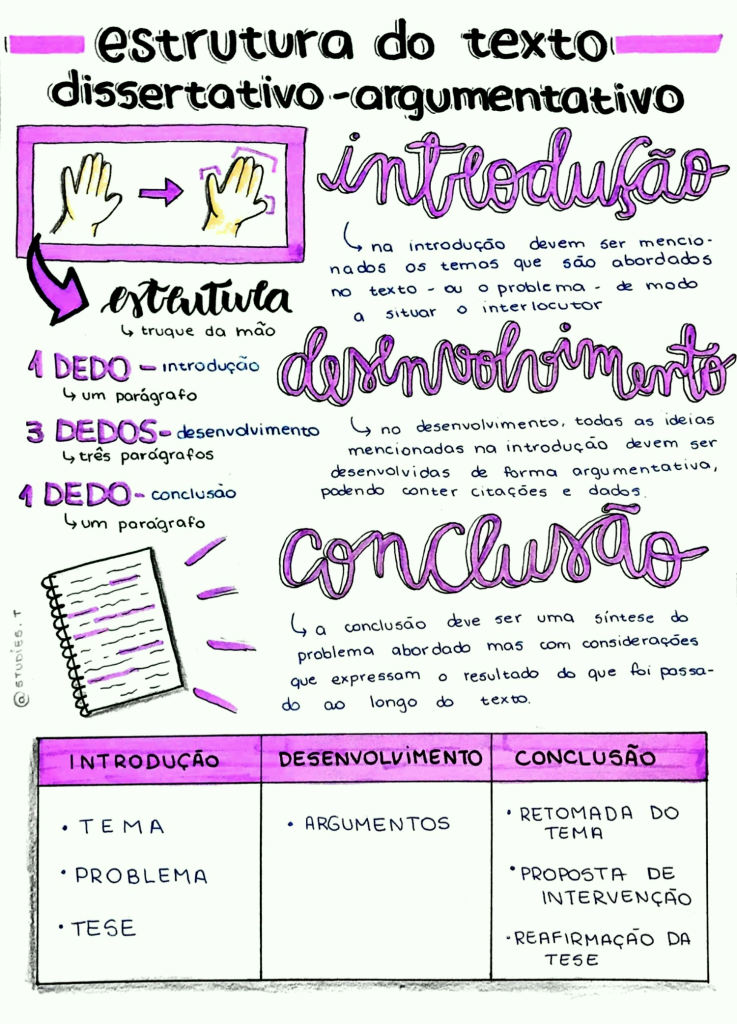 estrutura do texto
dissertativo-argumentativo
estrutura
↳ truque da mão
1 DEDO - introdução
↳ um parágrafo
3 DEDOS - desenvolvimento
↳ três parágrafos
1 DEDO - conclusão
↳ um parágrafo
@STUDIES.T
introdução
↳ na introdução devem ser mencio-
nados os temas que são abordados
no texto - ou o problema - de modo
a situar o interlocutor
desenvolvimento
↳ no desenvolvimento, todas as ideias
mencionadas na introdução devem ser
desenvolvidas de forma argumentativa,
podendo conter citações e dados.
conclusão
↳ a conclusão deve ser uma síntese do
problema abordado mas com considerações
que expressam o resultado do que foi passa-
do ao longo do texto.
INTRODUÇÃO
• TEMA
• PROBLEMA
• TESE
DESENVOLVIMENTO
• ARGUMENTOS
CONCLUSÃO
• RETOMADA DO
TEMA
• PROPOSTA DE
INTERVENÇÃO
• REAFIRMAÇÃO DA
TESE